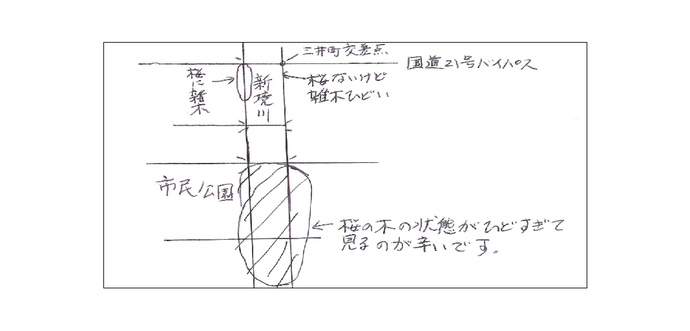 三井町交差点
国道21号バイパス
桜に雑木
新境川
桜ないけど
雑木ひどい
市民公園
桜の木の状態がひどすぎて
見るのが辛いです。